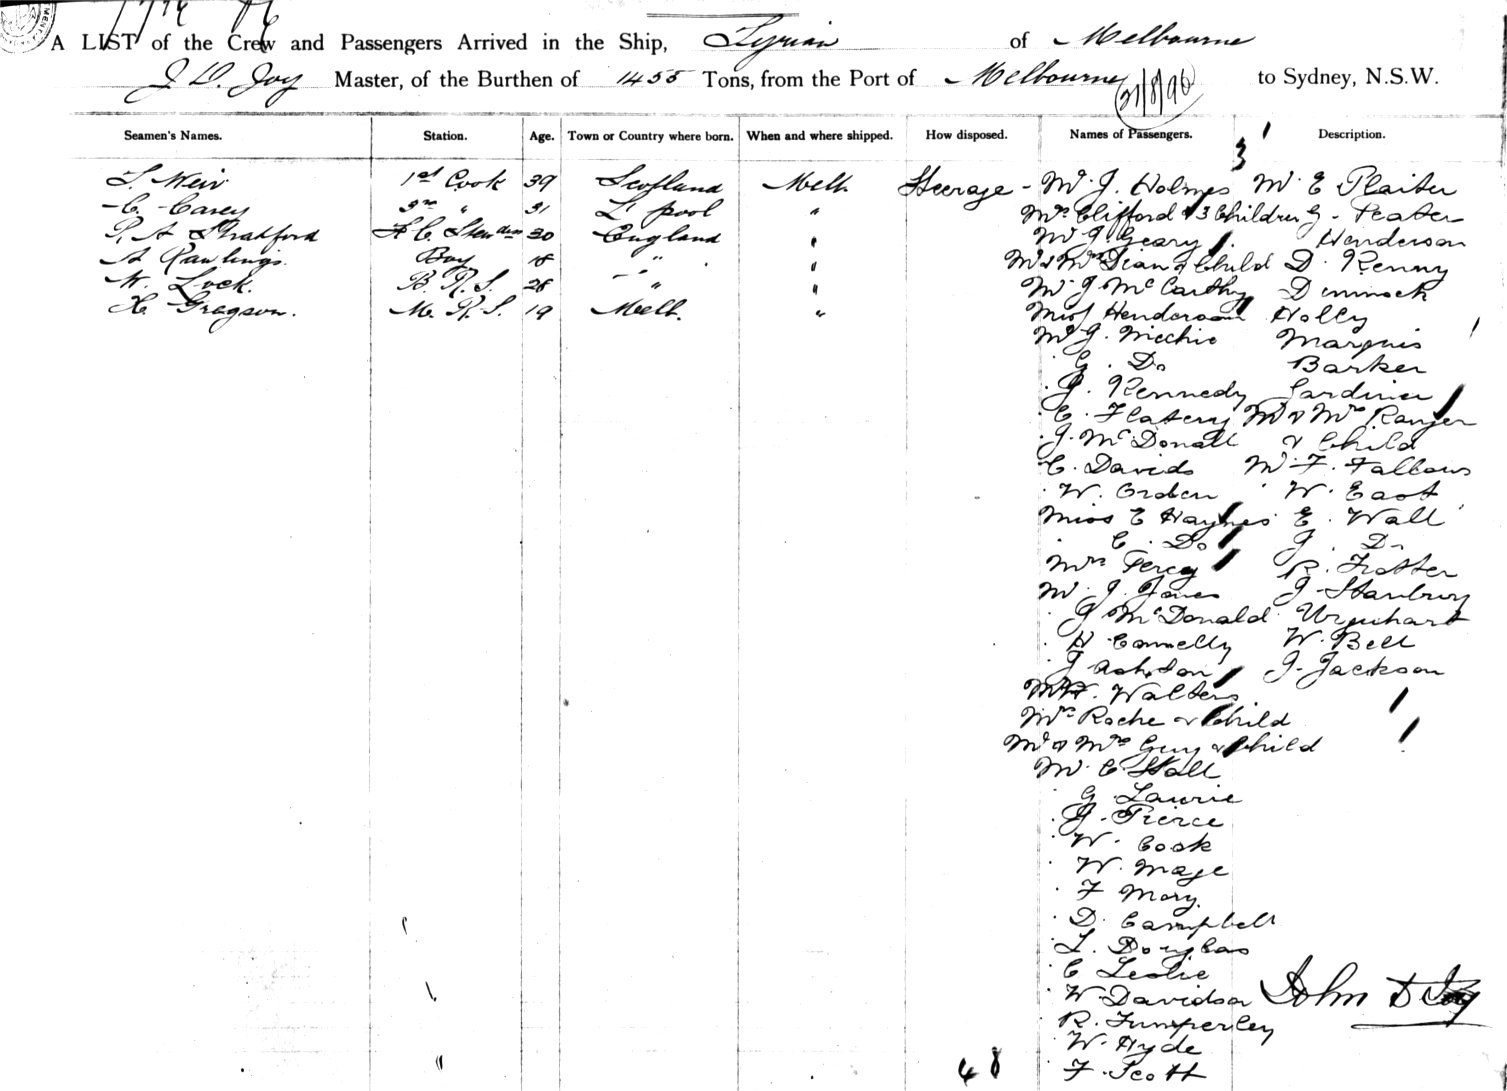 A LIST of the Crew and Passengers Arrived in the Ship, Syrian of Melbourne
J D. Joy Master, of the Burthen of 1455 Tons, from the Port of Melbourne 21/8/96 to Sydney, N.S.W.
Seamen's Names. Station. Age. Town or Country where born. When and where shipped. How disposed. Names of Passengers. Description.
3 1
J. Weir 1st Cook 39 Scotland Melb. Steerage - Mr J. Holmes Mr E Plaiter
C. Carey 31 L'pool " Mrs Clifford & 3 Children G. Peater
R. A Stratford 30 England " Mr J. Geary Henderson
A Rawlings. Boy 18 " " Mr & Mrs Dean & Child D. Kenny
W. Lock. B. R. S. 28 " " Mr J. McCarthy Dimmock
H. Gregson. M. R. S. 19 Melb. " Miss Henderson Holly
Mr J. Mechie Marquis
G. Do Barker
J. Kennedy Gardiner
C. Flatery Mr & Mrs Ranger
J. McDonall & Child
C. Davids Mr F. Fallows
W. Orden W. East
Miss E Haynes E. Wall
C. Do J. Do
Mrs Percy R. Trotter
Mr J. Jones J. Stanbury
J McDonald Urquhart
H Connelly W. Bell
J Ashton J. Jackson
Walters
Mrs Roche & Child
Mr & Mrs Guy & Child
Mr C. Hall
G. Laurie
J. Pierce
W. Cook
W. Mage
F Mory.
D. Campbell
L. Douglas
C Leslie
W Davidson John D Joy
R. Timperley
W. Hyde
48 F. Scott